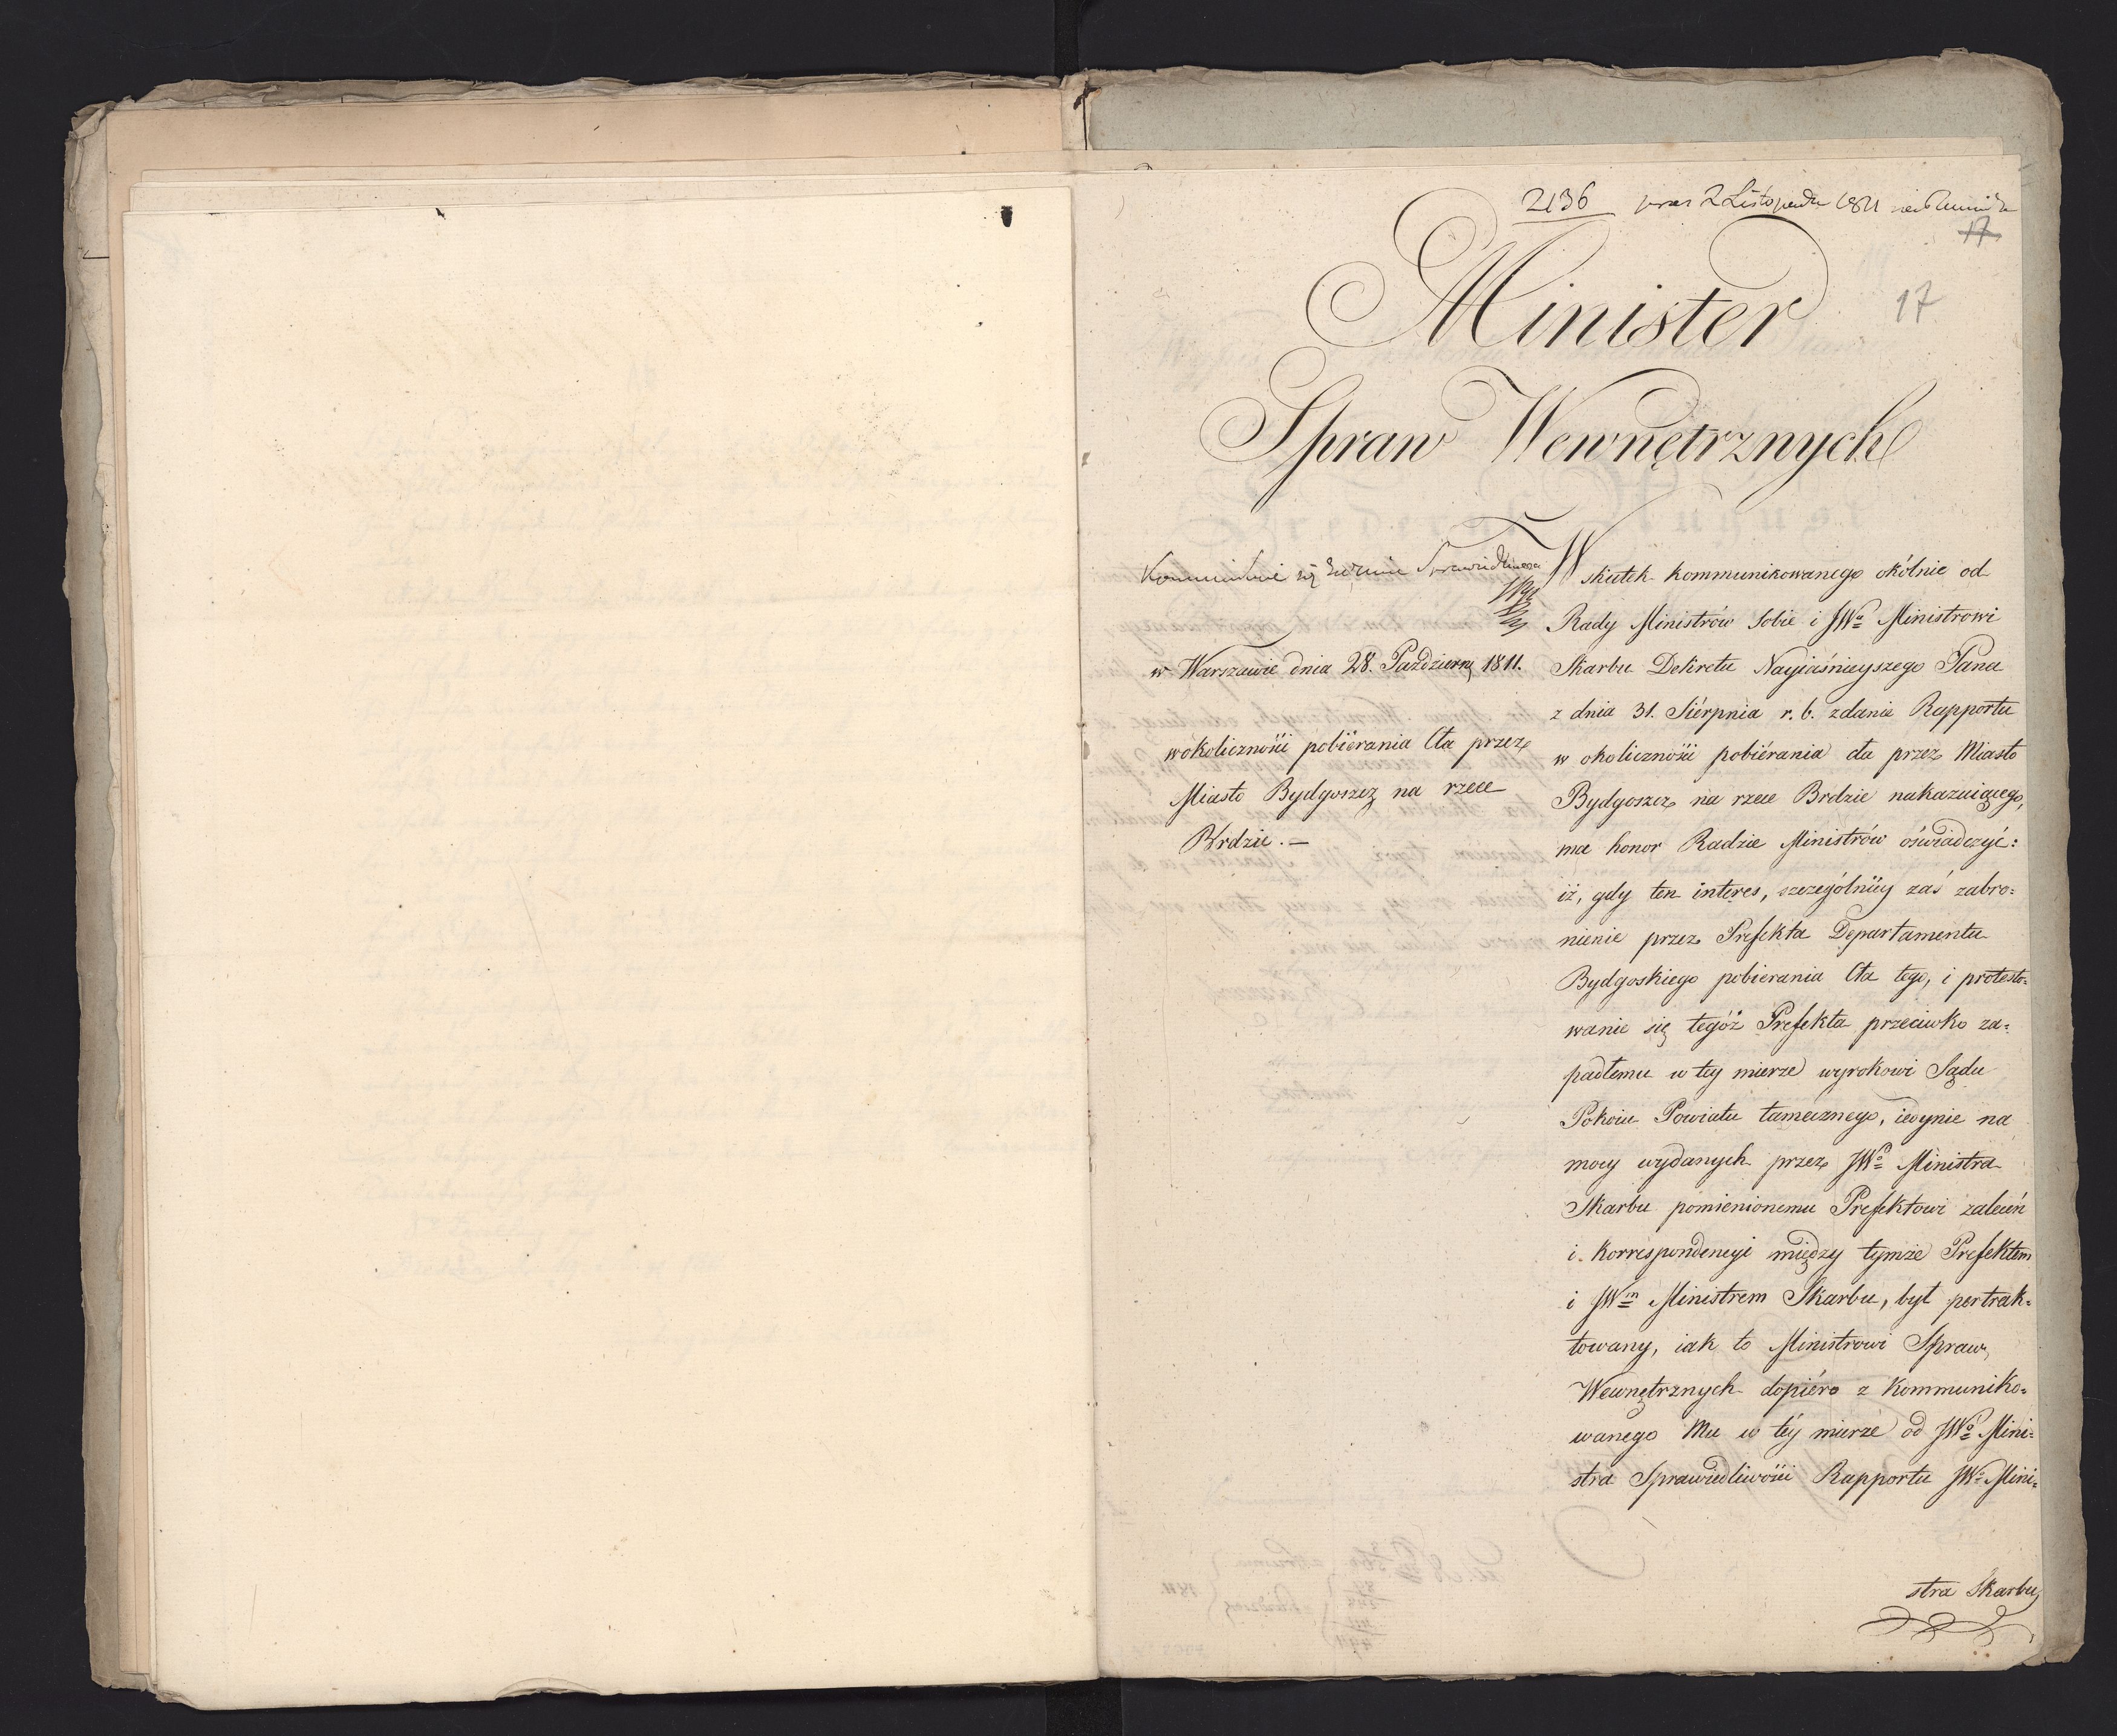 2136 prez 2 Listopada 1811
17
17
Minister
Spraw Wewnętrznych
w Warszawie dnia 28. Październ. 1811.
w okoliczności pobiérania Cła przez
Miasto Bydgoszcz na rzece
Brdzie. –
W skutek kommunikowanego okólnie od
Rady Ministrów Sobie i JWo Ministrowi
Skarbu Dekretu Nayiaśnieyszego Pana
z dnia 31. Siérpnia r. b. zdania Rapportu
w okoliczności pobiérania cła przez Miasto
Bydgoszcz na rzece Brdzie nakazuiącego,
ma honor Radzie Ministrów oświadczyć:
iż, gdy ten interes, szczególniey zaś zabro=
nienie przez Prefekta Departamentu
Bydgoskiego pobierania Cła tego, i protesto=
wanie się tegóż Prefekta przeciwko za=
padłemu w tey mierze wyrokowi Sądu
Pokoiu Powiatu tamecznego, iedynie na
mocy wydanych przez JWo Ministra
Skarbu pomienionemu Prefektowi zaleceń
i korrespondencyi między tymże Prefektem
i JWm Ministrem Skarbu, był pertrak=
towany, iak to Ministrowi Spraw
Wewnętrznych dopiéro z kommuniko=
wanego Mu w téy mierze od JWo Mini=
stra Sprawiedliwości Rapportu JWo Mini=
stra Skarbu